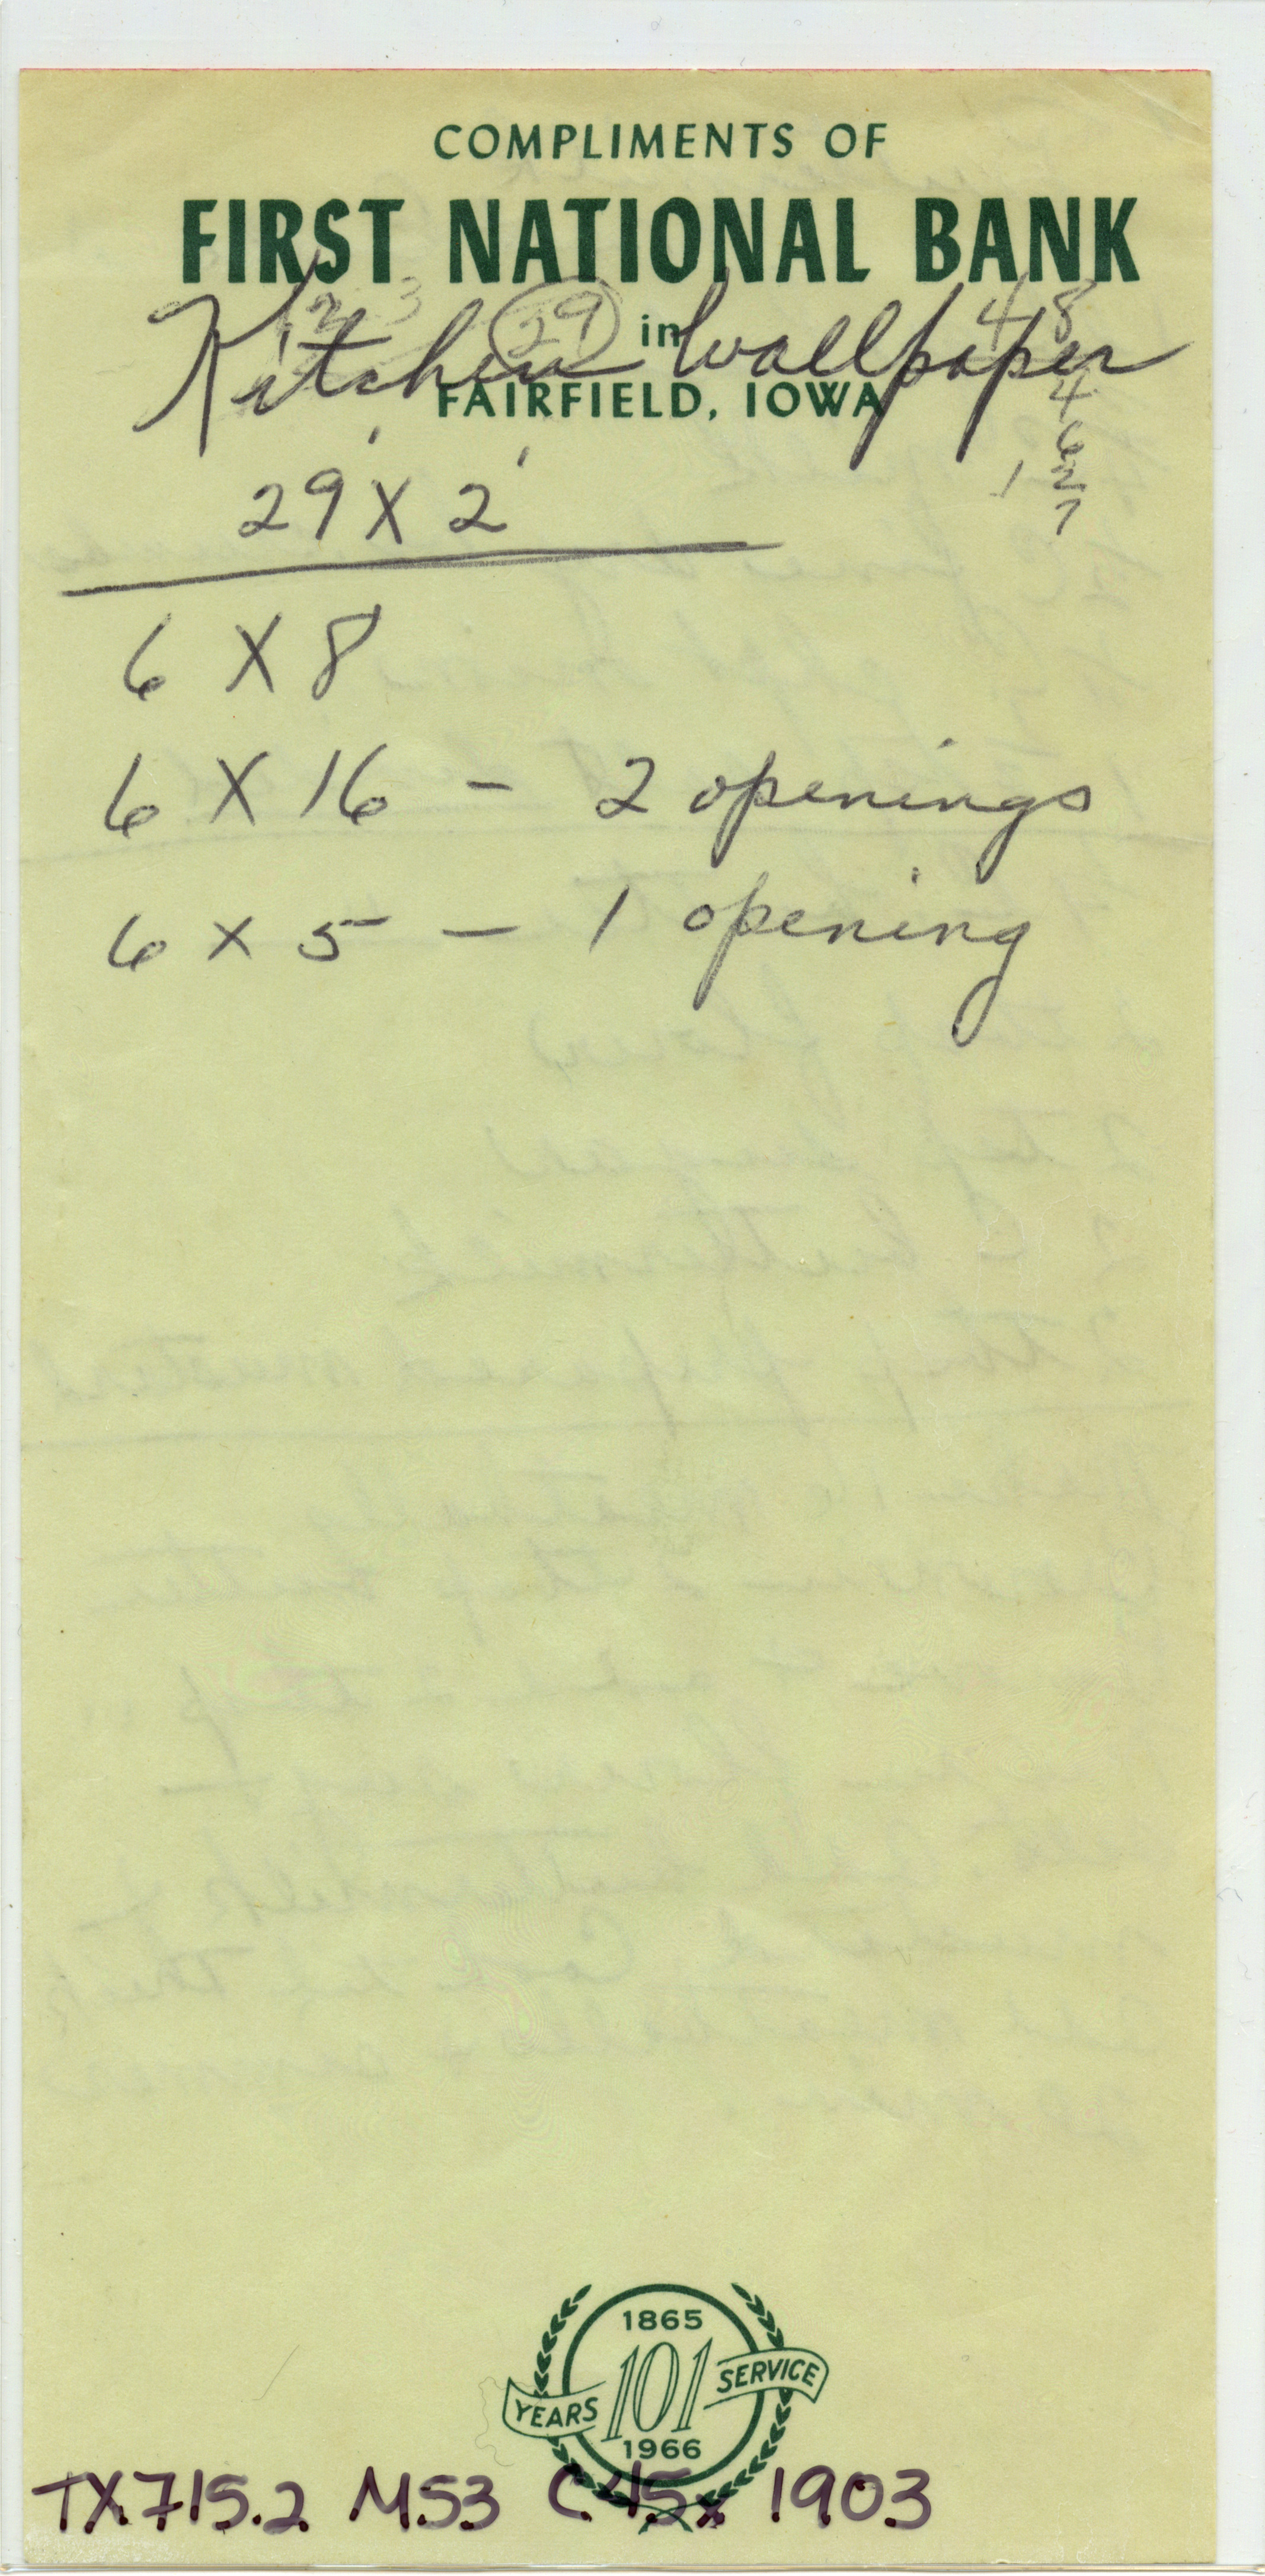 COMPLIMENTS OF
FIRST NATIONAL BANK
in
FAIRFIELD, IOWA
Kitchen Wallpaper
29
48
4
6
1 2
7
29' X 2'
6 X 8
6 X 16 - 2 openings
6 X 5 - 1 opening
1865
YEARS 101 SERVICE
1966
TX715.2 M53 C45x 1903